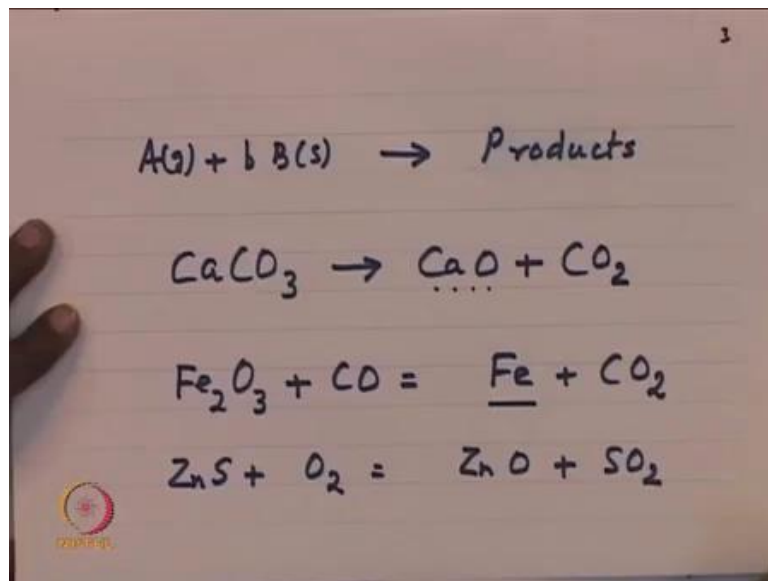 3
A(g) + b B(s) → Products
CaCO₃ → CaO + CO₂
Fe₂O₃ + CO = Fe + CO₂
ZnS + O₂ = ZnO + SO₂
NPTEL